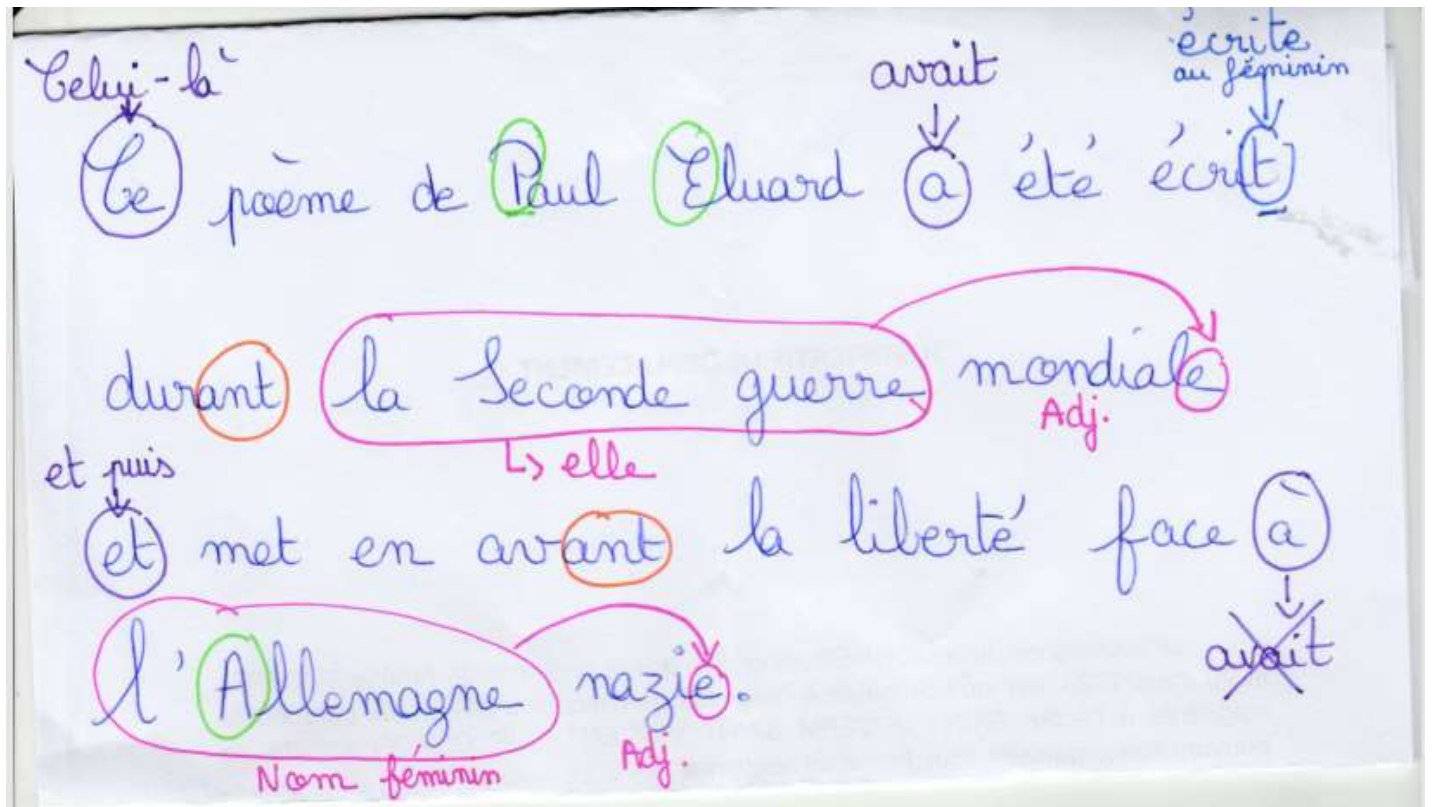 Celui-là avait écrite
au féminin
Ce poème de Paul Eluard a été écrit
durant la Seconde guerre mondiale
Adj.
et puis → elle
et met en avant la liberté face à
avait
l'Allemagne nazie.
Nom féminin Adj.